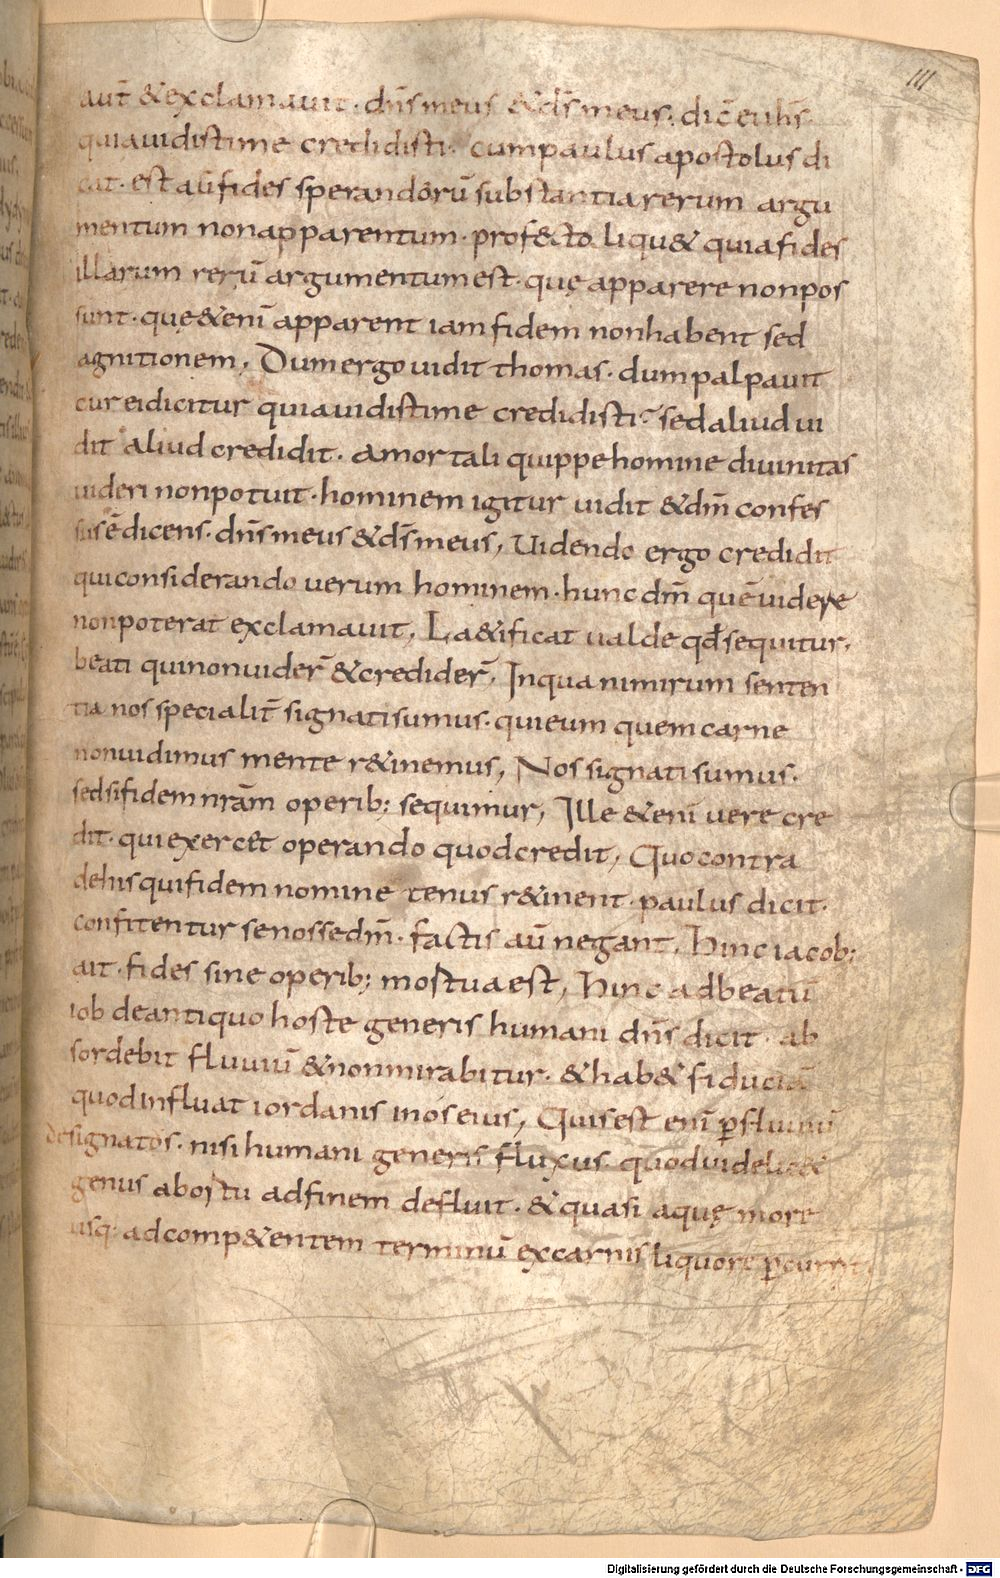 111
aut̄ &exclamauit· dn̄s meus &ds̄ meus· dic̄ ei ih̄s·
quia uidisti me credidisti· Cum paulus apostolus di
cat· est aut̄ fides sperandorū substantia rerum argu
mentum non apparentum· prof&cto liqu& quia fides
illarum rerū argumentum est· quę apparere non pos
sunt· quę &enī apparent iam fidem non habent sed
agnitionem, Dum ergo uidit thomas· dum palpauit
cur ei dicitur quia uidisti me credidisti? sed aliud ui
dit aliud credidit· A mortali quippe homine diuinitas
uideri non potuit· hominem igitur uidit & dm̄ confes
sus ē dicens· dn̄s meus & ds̄ meus, Uidendo ergo credidit
qui considerando uerum hominem· hunc dm̄ quē uidere
non poterat exclamauit, Laetificat ualde qđ sequitur·
beati qui non uider̄ & credider̄, In qua nimirum senten
tia nos specialit̄ signati sumus· qui eum quem carne
non uidimus mente r&inemus, Nos signati sumus·
sed si fidem nrām operib; sequimur, Ille &enī uere cre
dit· qui exercet operando quod credit, Quo contra
de his qui fidem nomine tenus r&inent· paulus dicit·
confitentur se nosse dm̄· factis aū negant, Hinc iacob;
ait· fides sine operib; mortua est, Hinc ad beatū
iob de antiquo hoste generis humani dn̄s dicit· ab
sordebit fluuiū & non mirabitur· & hab& fiduciā
quod influat iordanis in os eius, Quis est enī ꝑ fluuiū
designatos· nisi humani generis fluxus· quod uidelic&
genus ab ortu ad finem defluit· & quasi aquę more
usq· ad comp&entem terminū ex carnis liquore
Digitalisierung gefördert durch die Deutsche Forschungsgemeinschaft - DFG